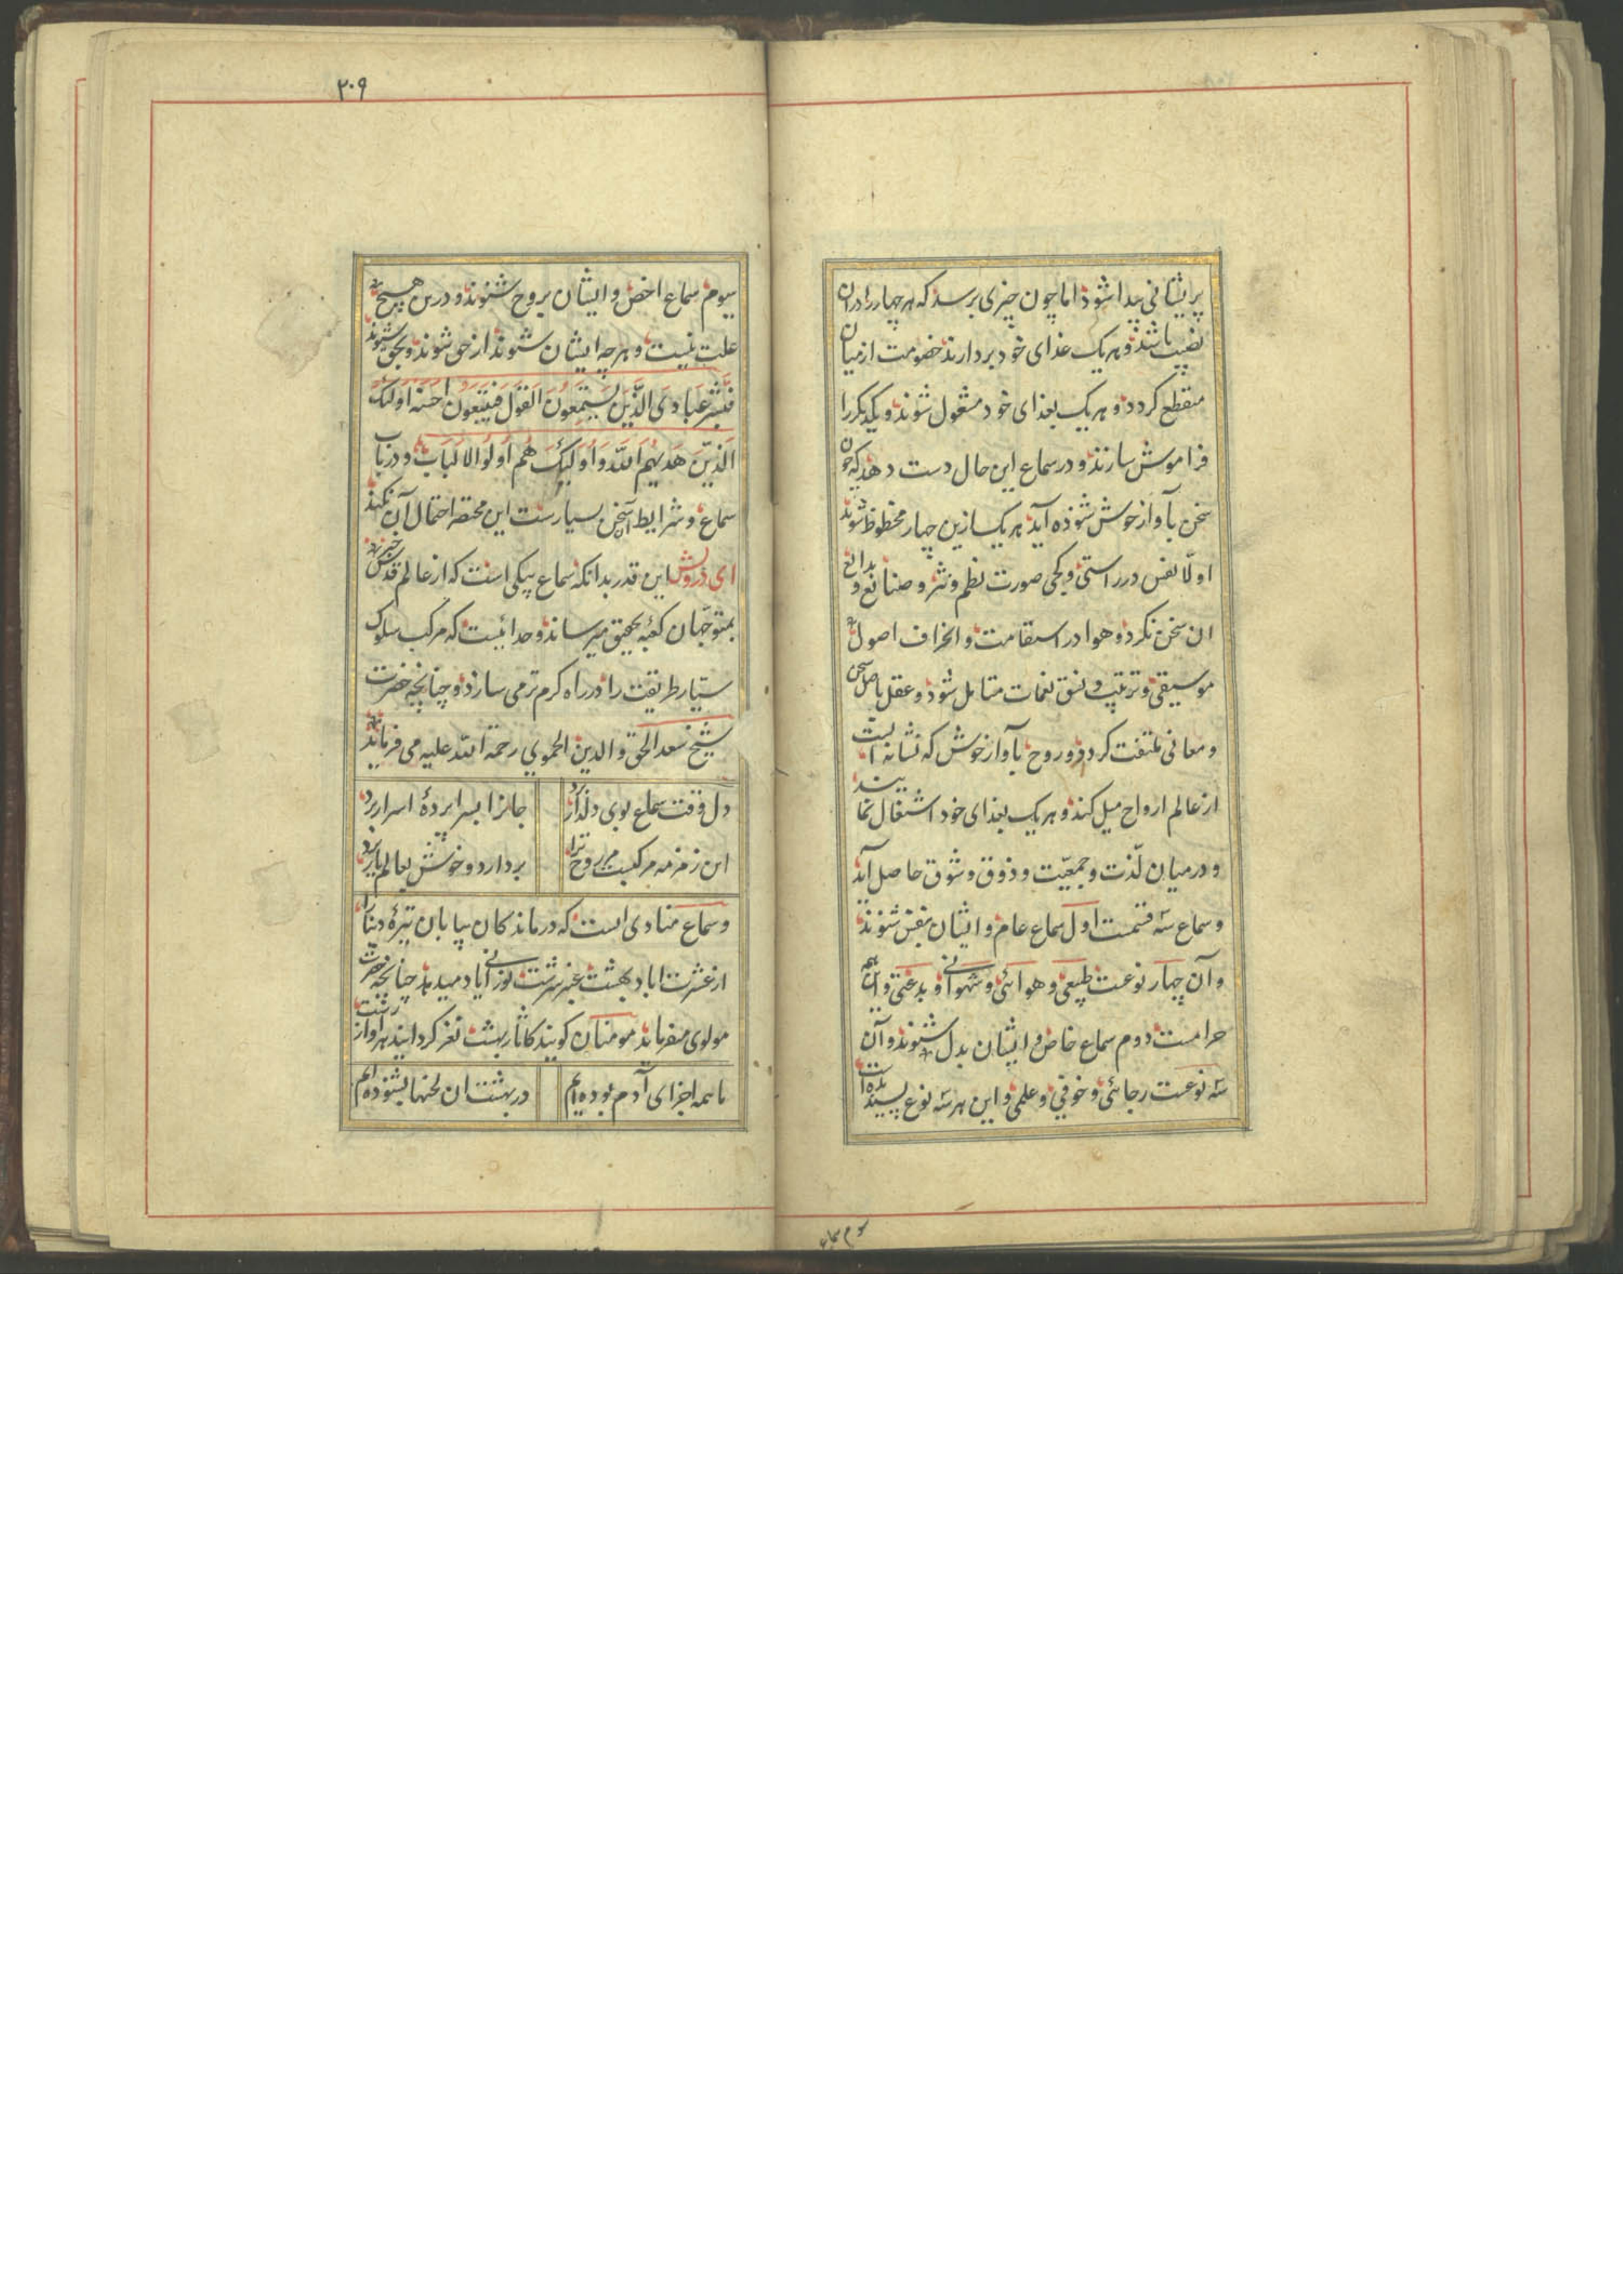 پریشانی پیدا شود اما چون چیزی برسد که هر چهار را در آن
نصیب باشد و هر یک غذای خود بردارند خصومت از میان
منقطع کردد و هر یک بغذای خود مشغول شوند و یکدیکر را
فراموش سازند و در سماع این حال دست دهد که چون
سخن بآواز خوش شنوده آید هر یک ازین چهار محظوظ شوند
اولا نفس در راستی و کجی صورت نظم و نثر و صنایع و بدایع
ان سخن نکرد و هوا در استقامت و انحراف اصول
موسیقی و ترتیب و نسق نغمات متامل شود و عقل باصل سخن
و معانی ملتفت کردد و روح بآواز خوش که نشانه ایست
از عالم ارواح میل کند و هر یک بغذای خود اشتغال نمایند
و در میان لذت و جمعیت و ذوق و شوق حاصل آید
و سماع سه قسمت اول سماع عام و ایشان بنفس شنوند
و آن چهار نوعست طبیعی و هوائی و شهوانی و بدعتی و این همه
حرامست دوم سماع خاص و ایشان بدل شنوند و آن
سه نوعست رجائی و خوفی و علمی و این هر سه نوع پسندیده است
سوم سماع
۲۰۹
سیوم سماع اخص و ایشان بروح شنوند و درین هیچ
علت نیست و هر چه ایشان شنوند از حق شنوند و بحق شنوند
فَبَشِّر عِبَادِیَ الَّذِینَ یَستَمِعُونَ القَولَ فَیَتَّبِعُونَ احسنه اولئک
الَّذِینَ هَدیهُم اللّٰه وَ اُولَئِکَ هُم اُولُوا الالبَاب و در باب
سماع و شرایط آن سخن بسیارست این مختصر احتمال آن نکند
ای درویش این قدر بدانکه سماع پیکی است که از عالم قدس خبر
بمتوجهان کعبه تحقیق میرساند و حدائیست که مرکب سلوک
سیار طریقت را در راه کرم تر می سازد و چنانچه حضرت
شیخ سعد الحق و الدین الحموی رحمة الله علیه می فرماید
دل وقت سماع بوی دلدار برد
جانرا بسراپردهٔ اسرار برد
این زمزمه مرکبیست مر روح ترا
بردارد و خوش بعالم یار برد
و سماع منادی است که درماندکان بیابان تیرهٔ دنیا را
از عشرت اباد بهشت عنبر سرشت نورانی یاد میدهد چنانچه حضرت
مولوی میفرماید مومنان کویند کاثار بهشت نغز کردانید هر آواز زشت
ما همه اجزای آدم بوده ایم
در بهشت ان لحنها بشنوده ایم